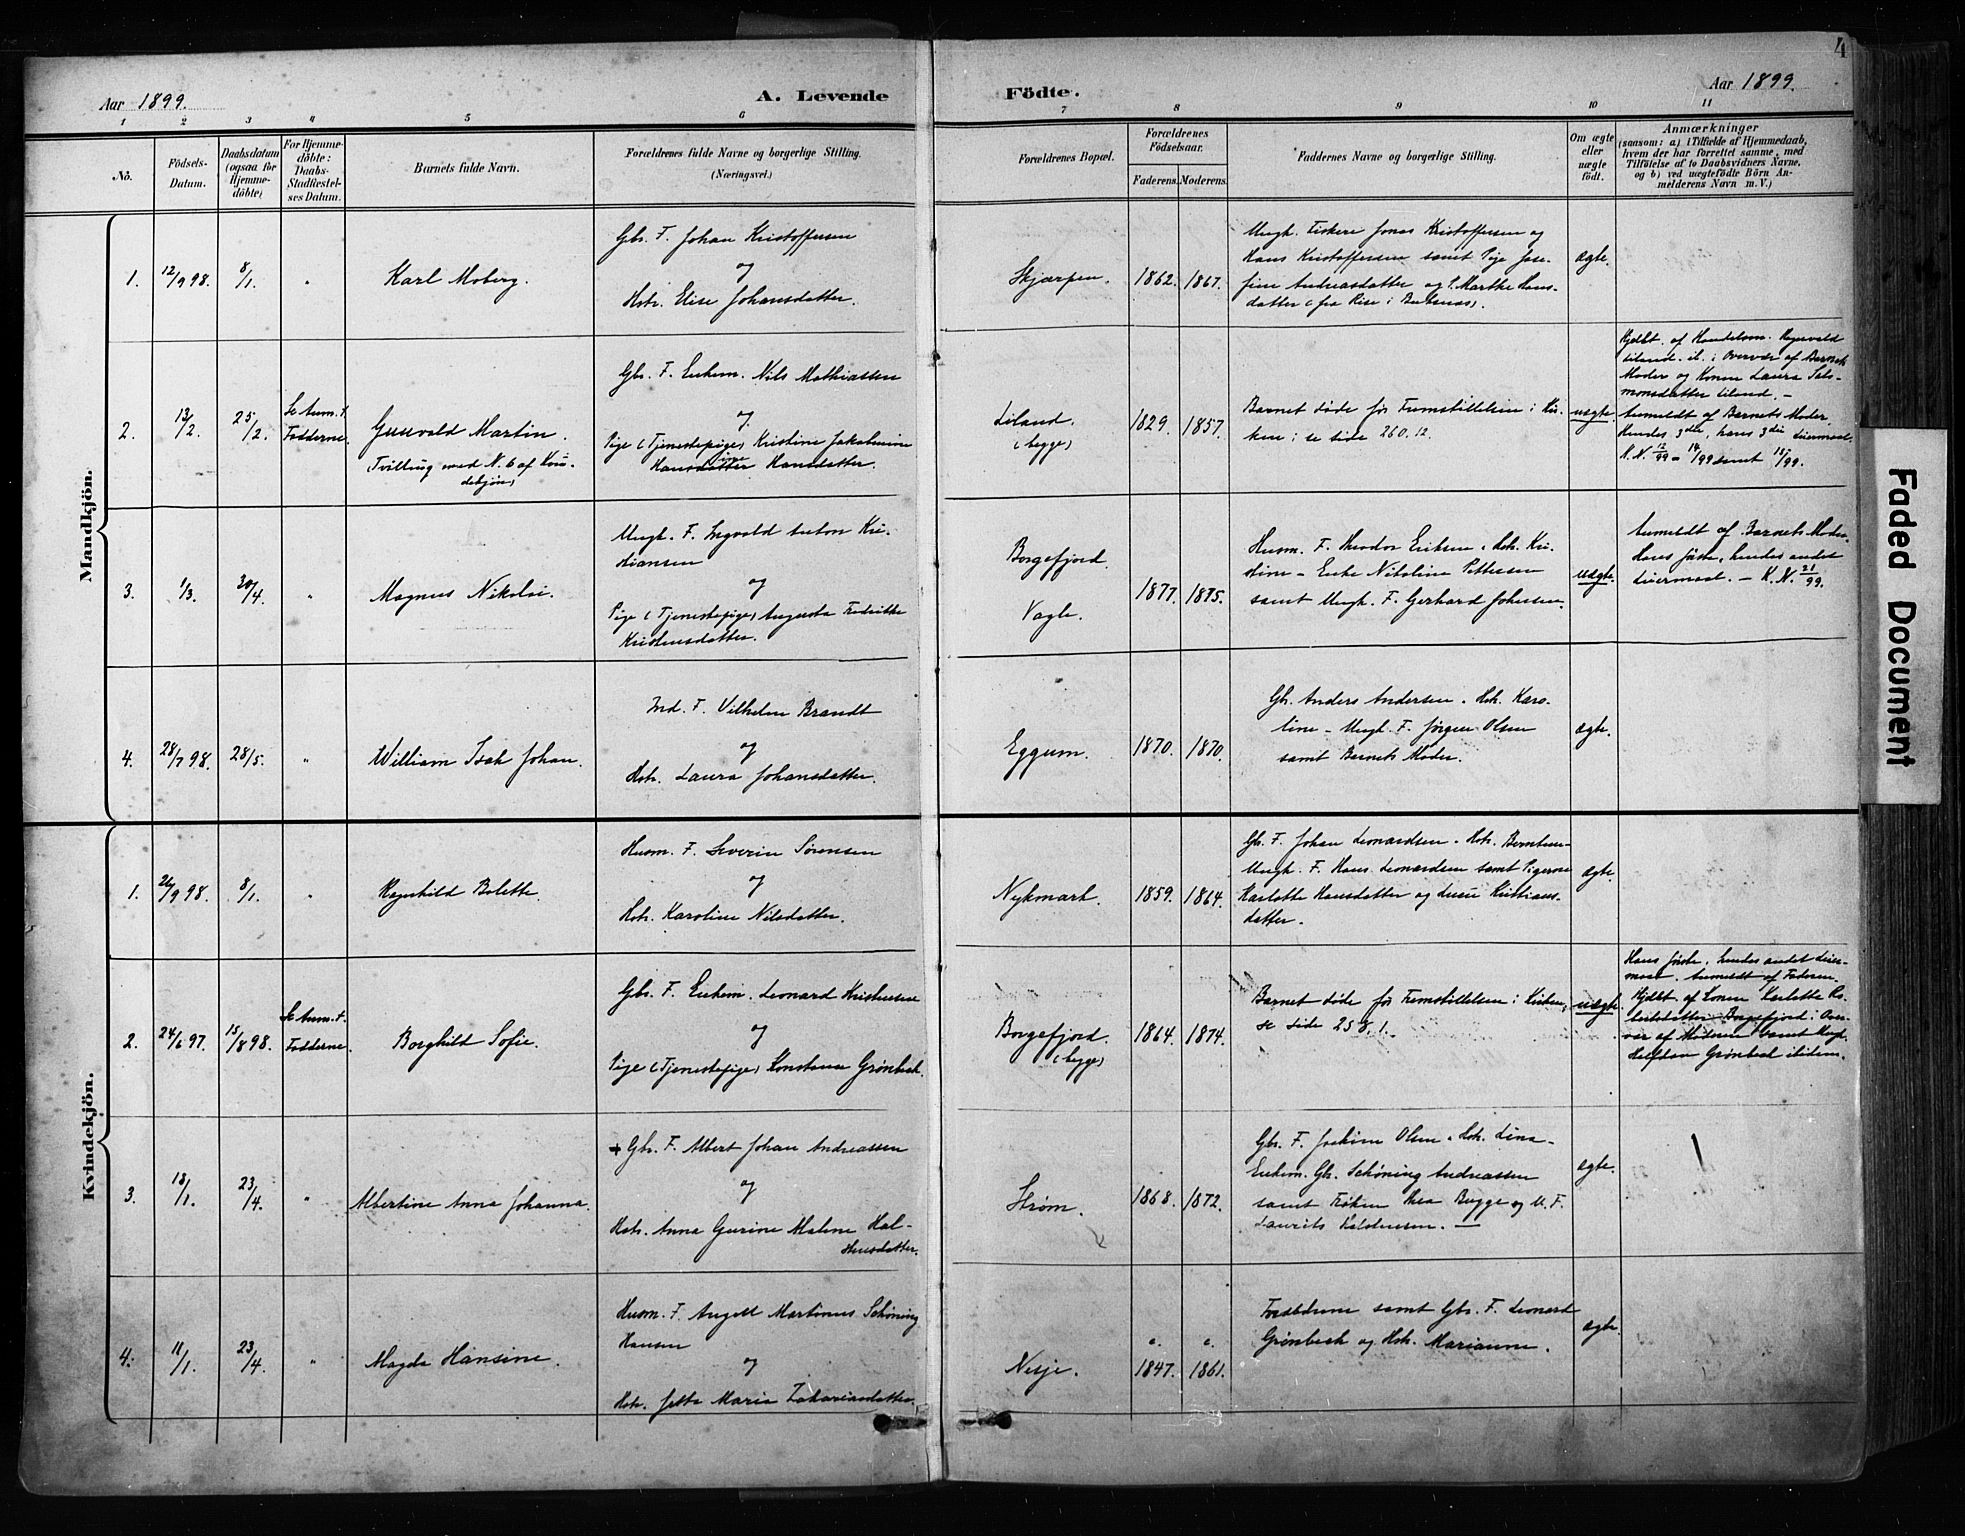 4
Aar 1899.
A. Levende Födte.
Aar 1899.
1 2 3 4 5 6 7 8 9 10 11
No.
Födsels-Datum.
Daabsdatum (ogsaa för Hjemme-döbte)
For Hjemme-döbte: Daabs-Stadfæstel-ses Datum.
Barnets fulde Navn.
Forældrenes fulde Navne og borgerlige Stilling.
(Næringsvei.)
Forældrenes Bopæl.
Forældrenes Födselsaar.
Faderens. Moderens.
Faddernes Navne og borgerlige Stilling.
Om ægte eller uægte födt.
Anmærkninger
(saasom: a) i Tilfælde af Hjemmedaab,
hvem der har forrettet samme, med
Tilföielse af to Daabsvidners Navne,
og b) ved uægtefödte Börn An-
melderens Navn m.V.)
Mandkjön.
1. 12/9 98. 8/1. " Karl Moberg.
Gbr. F. Johan Kristoffersen
og
Hstr. Elise Johansdatter.
Skjærpen. 1862. 1867.
Ungk. Fiskere Jonas Kristoffersen og
Hans Kristoffersen samt Pige Jose-
fine Andreasdatter og P. Marthe Hans-
datter
ægte.
2. 13/2. 25/2. Se Anm. f. Fadderne.
Gunvald Martin.
(Tvilling med N. 6 af Kvin-
dekjøn)
Gbr. F. Enkem. Nils Mathiassen
og
Pige (Tjenestepige) Kristine Jakobmine
Hansdatter.
Liland.
(begge)
1829. 1857.
Barnet døde før Fremstillelsen i Kir-
ken; se Side 260. 12.
uægte.
Hjdbt. af Handelsm. Ragnvald
Liland. ib. i Overvær af Barnets
Moder og Konen Laura Salo-
monsdatter Liland. -
Anmeldt af Barnets Moder.
Hendes 3die, hans 3die Leiermaal.
K.N. 12/99 - 14/99 samt 15/99.
3. 1/3. 30/4. " Magnus Nikolai.
Ungk. F. Ingvald Anton Kri-
stiansen
og
Pige (Tjenestepige) Augusta Fredrikke
Kristensdatter.
Borgefjord.
Vagle.
1877. 1875.
Husm. F. Theodor Eriksen, Hstr. Kri-
stine - Enke Nikoline Pettersen
samt Ungk. F. Gerhard Johnsen.
uægte.
Anmeldt af Barnets Moder.
Hans første, hendes andet
Leiermaal. - K.N. 21/99.
4. 28/7 98. 28/5. " William Isak Johan.
Ind. F. Vilhelm Brandt
og
Hstr. Laura Johansdatter.
Eggum. 1870. 1870.
Gb. Anders Andersen, Hstr. Karo-
line - Ungk. F. Jørgen Olsen
samt Barnets Moder.
ægte.
Kvindekjön.
1. 26/9 98. 8/1. " Ragnhild Bolette.
Husm. F. Severin Sørensen
og
Hstr. Karoline Nilsdatter.
Nykmark. 1859. 1864.
Gbr. F. Johan Leonardsen, Hstr. Berntine -
Ungk. F. Hans Leonardsen samt Pigerne
Karlotte Hansdatter og Kristians-
datter.
ægte.
2. 24/6 97. 15/8 98. Se Anm. f. Fadderne.
Borghild Sofie.
Gbr. F. Enkem. Leonard Kristensen
og
Pige (Tjenestepige) Konstanse Grønbech.
Borgefjord.
(begge)
1864. 1874.
Barnet døde før Fremstillelsen i Kirken,
se Side 258. 1.
uægte.
Hans første, hendes andet Leier-
maal. Anmeldt af Faderen.
Hjdbt. af Konen Karlotte
Borgefjord i Over-
vær af Moderen samt Ungk.
Halfdan Grønbech ibidem.
3. 18/1. 23/4. " Albertine Anna Johanna.
+ Gbr. F. Albert Johan Andreassen
og
Hstr. Anna Gurine Malene Hal-
stensdatter.
Strøm. 1868. 1872.
Gbr. F. Joakim Olsen, Hstr. Lina -
Enkem. Gb. Schøning Andreassen
samt Frøken Thea Bugge og U. F.
Laurits
ægte.
4. 11/1. 23/4. " Magda Hansine.
Husm. F. Angell Martinus Schøning
Hansen
og
Hstr. Jetta Maria Zakariasdatter.
Nesje. 1847. 1861.
Forældrene samt Gbr. F. Leonard
Grønbech og Hstr. Marianne.
ægte.
Faded Document